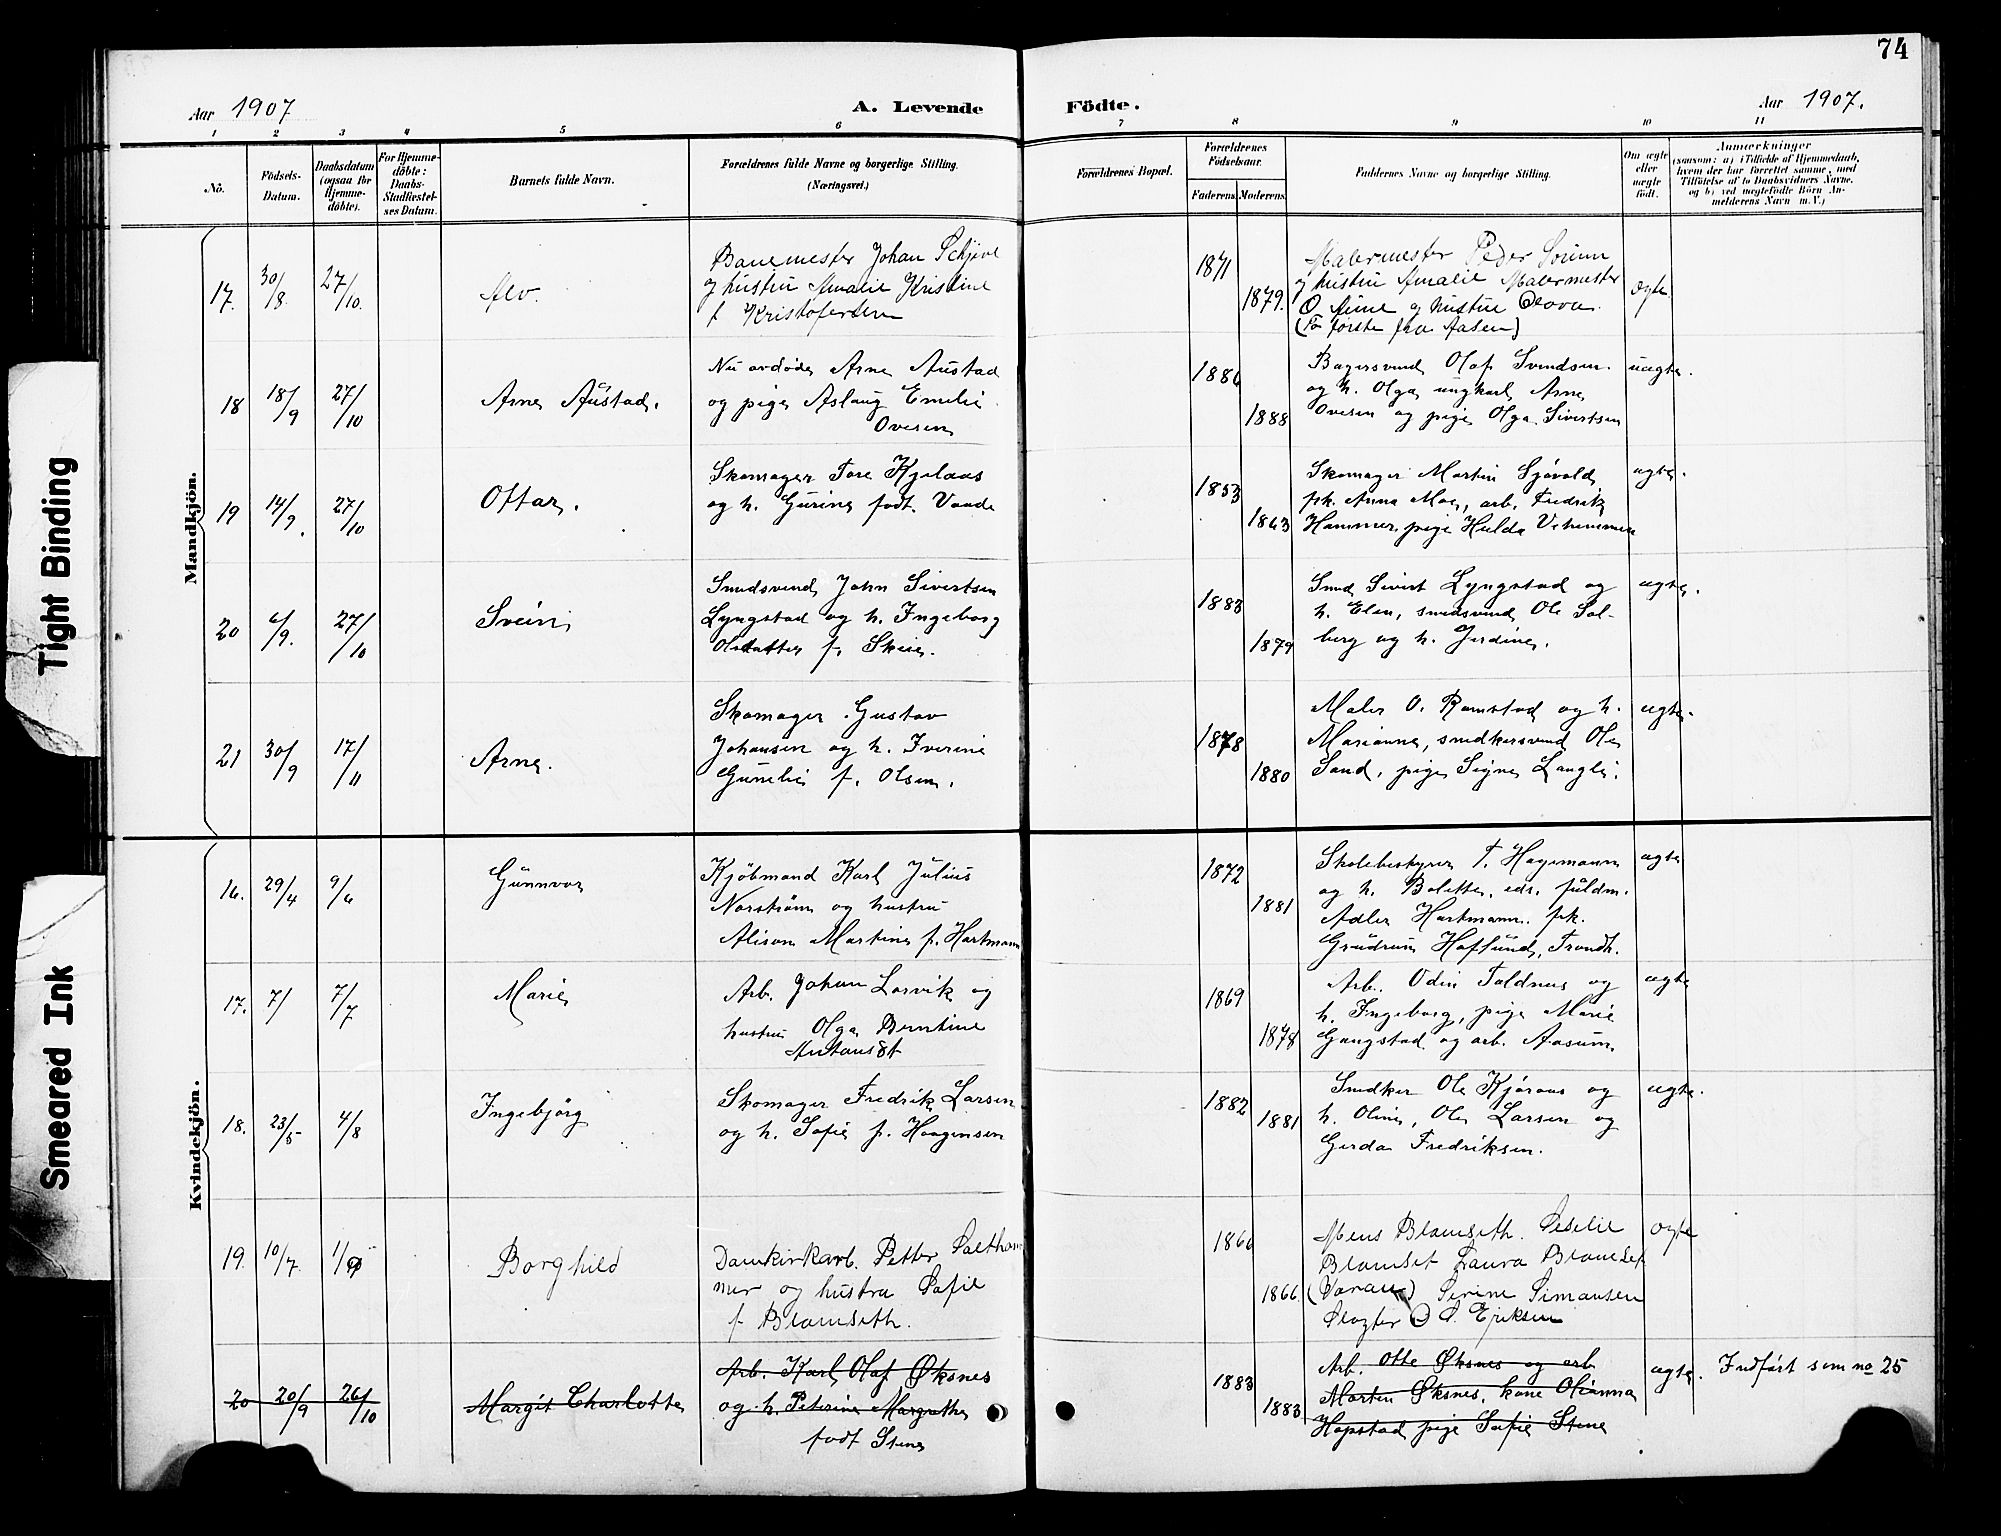 74
Aar 1907
A. Levende
Födte.
Aar 1907.
1 2 3 4 5 6 7 8 9 10 11
No.
Födsels-
Datum.
Daabsdatum
(ogsaa for
Hjemme-
döbte).
For Hjemme-
döbte:
Daabs-
Stadfæstel-
ses Datum.
Barnets fulde Navn.
Forældrenes fulde Navne og borgerlige Stilling.
(Næringsvei.)
Forældrenes Bopæl.
Forældrenes
Födselsaar.
Faderens. Moderens.
Faddernes Navne og borgerlige Stilling.
Om ægte
eller
uægte
födt.
Anmærkninger
(saasom: a) i Tilfælde af Hjemmedaab,
hvem der har forrettet samme, med
Tilföielse af to Daabsvidners Navne.
og b) ved uægtefödte Börn An-
melderens Navn m. V.)
Mandkjön.
17. 30/8. 27/10. Alv.
Banemester Johan Schjeve
og hustru Amalie Kristine
f Kristofersen
1871
1879.
Malermester Peder Sorum
og hustru Amalie Malermester
O. Aune og hustru
(To første fra Aasen)
ægte.
18 18/9 27/10 Arne Austad.
Nu avdøde Arne Austad
og pige Aslaug Emelie
Ovesen
1886
1888
Bagersvend Olaf Svendsen.
og h. Olga, ungkarl Arne
Ovesen og pige Olga Sivertsen
uægte.
19 14/9. 27/10 Ottar.
Skomager Tore Kjelaas
og h. Gurine født Vaade
1853
1863
Skomager Martin Sjøvold,
frk. Anna Moe, arb. Fredrik
Hammer, pige Hulda
ægte.
20 6/9. 27/10 Svein
Smedsvend John Sivertsen
Lyngstad og h. Ingeborg
Olsdatter f. Skeie.
1883
1879
Smed Sivert Lyngstad og
h. Elen, smedsvend Ole Sol-
berg og h. Jerdine.
ægte.
21 30/9 17/11 Arne.
Skomager Gustav
Johansen og h. Iverine
Gunelie f. Olsen.
1878
1880
Maler O. Ramstad og h.
Marianne, snedkersvend Ole
Sand, pige Signe Langli.
ægte.
Kvindekjön.
16. 29/4 9/6 Gunnvor
Kjøbmand Karl Julius
Norstrøm og hustru
Alison Martine f. Hartmann
1872
1881
Skolebestyrer T. Hagemann
og h. Bolette, eds. fuldm.
Adler Hartmann, frk.
Grudrun Haflund, Trondh.
ægte
17. 7/ 7/7 Marie
Arb. Johan Larvik og
hustru Olga Berntine
Antonsdt
1869
1878
Arb. Odin Toldnes og
h. Ingeborg, pige Marie
Gangstad og arb. Aasum
ægte
18. 23/5 4/8 Ingebjørg
Skomager Fredrik Larsen
og h. Sofie f. Haagensen
1882
1881
Snedker Ole Kjøraas og
h. Oline, Ole Larsen og
Gerda Fredriksen.
ægte.
19. 10/7. 1/9 Borghild
Dampkirkarb. Petter Saltham
mer og hustru Sofie
f Blomseth.
1866
1866.
Mons Blomseth. Seselie
Blomset Laura Blomset
Serine Simonsen
Slagter O S. Eriksen
ægte
20 20/9 26/10 Margit Charlotte
Arb. Karl Olaf Øksnes
og h. Peterine Margrethe
født Stene
1883
1883
Arb. Otto Øksnes og arb
Morten Øksnes, kone Olianna
Hopstad pige Sofie Stene
ægte.
Indført som no 25
Tight Binding
Smeared Ink